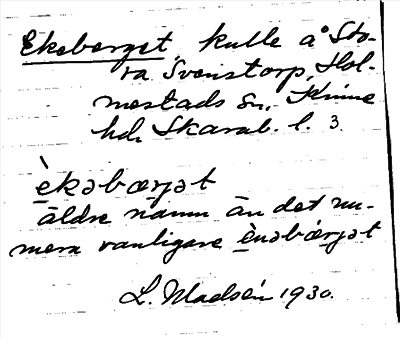 Ekeberget, kulle å Sto-
ra Svenstorp, Hol-
mestads sn, Kinne
hd, Skarab. l. 3.
è̱kəbærjət
äldre namn än det nu-
mera vanligare è̱nəbǽrjət
L. Madsén 1930.